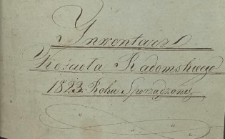 Inwentarz
Kościoła Radomskiego
1823 Roku Sporządzony